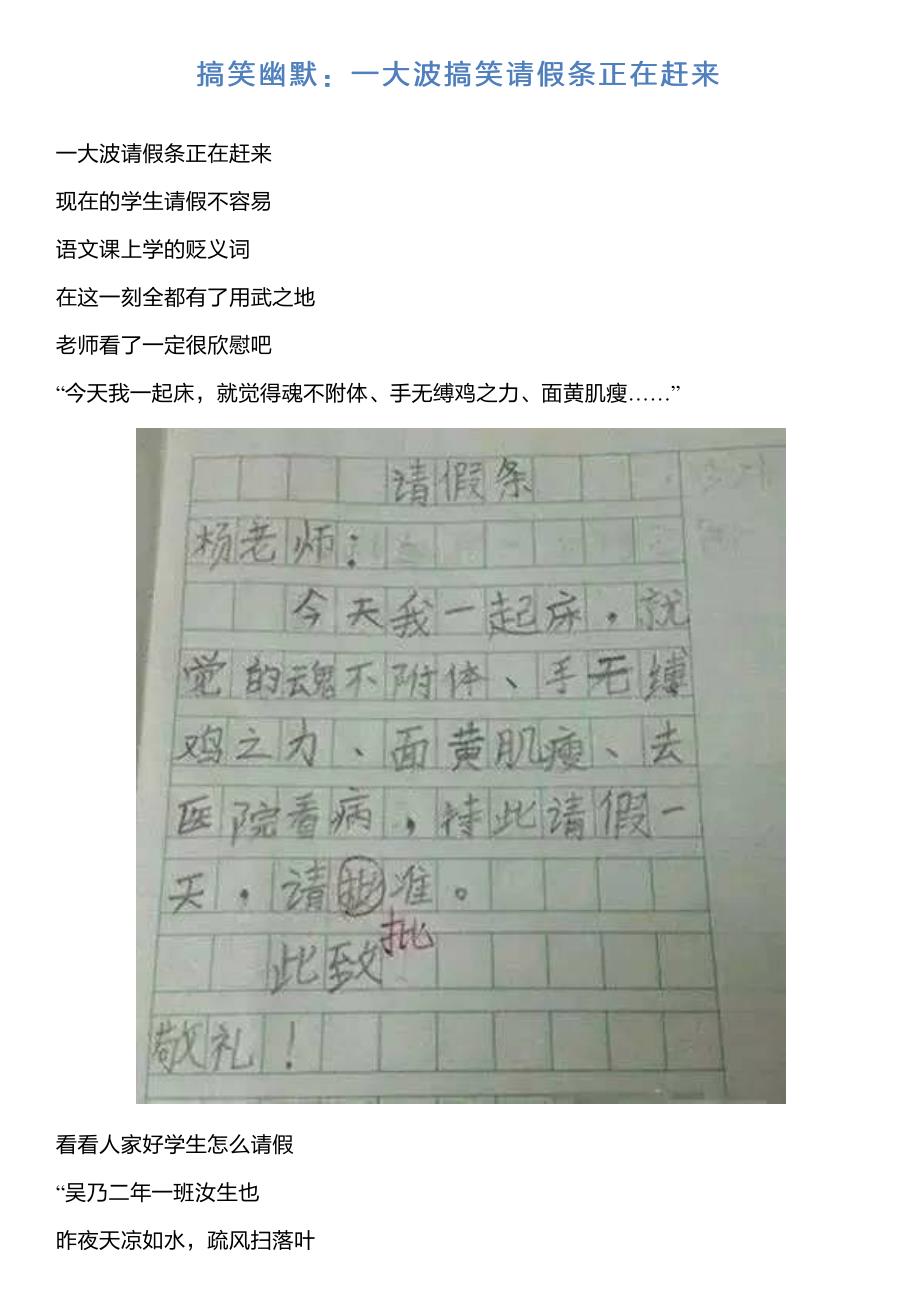 搞笑幽默：一大波搞笑请假条正在赶来
一大波请假条正在赶来
现在的学生请假不容易
语文课上学的贬义词
在这一刻全都有了用武之地
老师看了一定很欣慰吧
“今天我一起床，就觉得魂不附体、手无缚鸡之力、面黄肌瘦……”
请假条
杨老师：
今天我一起床，就
觉的魂不附体、手无缚
鸡之力、面黄肌瘦、去
医院看病，持此请假一
天，请准。
批
此致
敬礼！
看看人家好学生怎么请假
“吴乃二年一班汝生也
昨夜天凉如水，疏风扫落叶